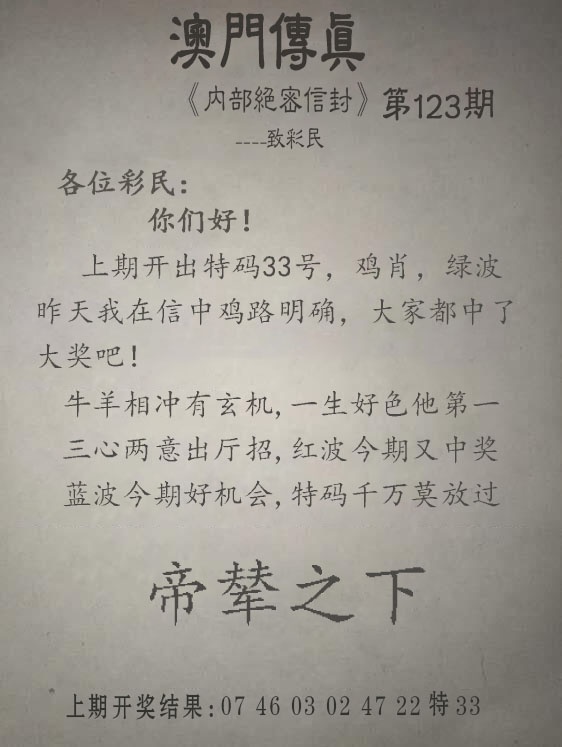 澳門傳眞
《内部絕密信封》第123期
----致彩民
各位彩民：
你们好！
上期开出特码33号，鸡肖，绿波
昨天我在信中鸡路明确，大家都中了
大奖吧！
牛羊相冲有玄机,一生好色他第一
三心两意出厅招,红波今期又中奖
蓝波今期好机会,特码千万莫放过
帝辇之下
上期开奖结果:07 46 03 02 47 22 特 33